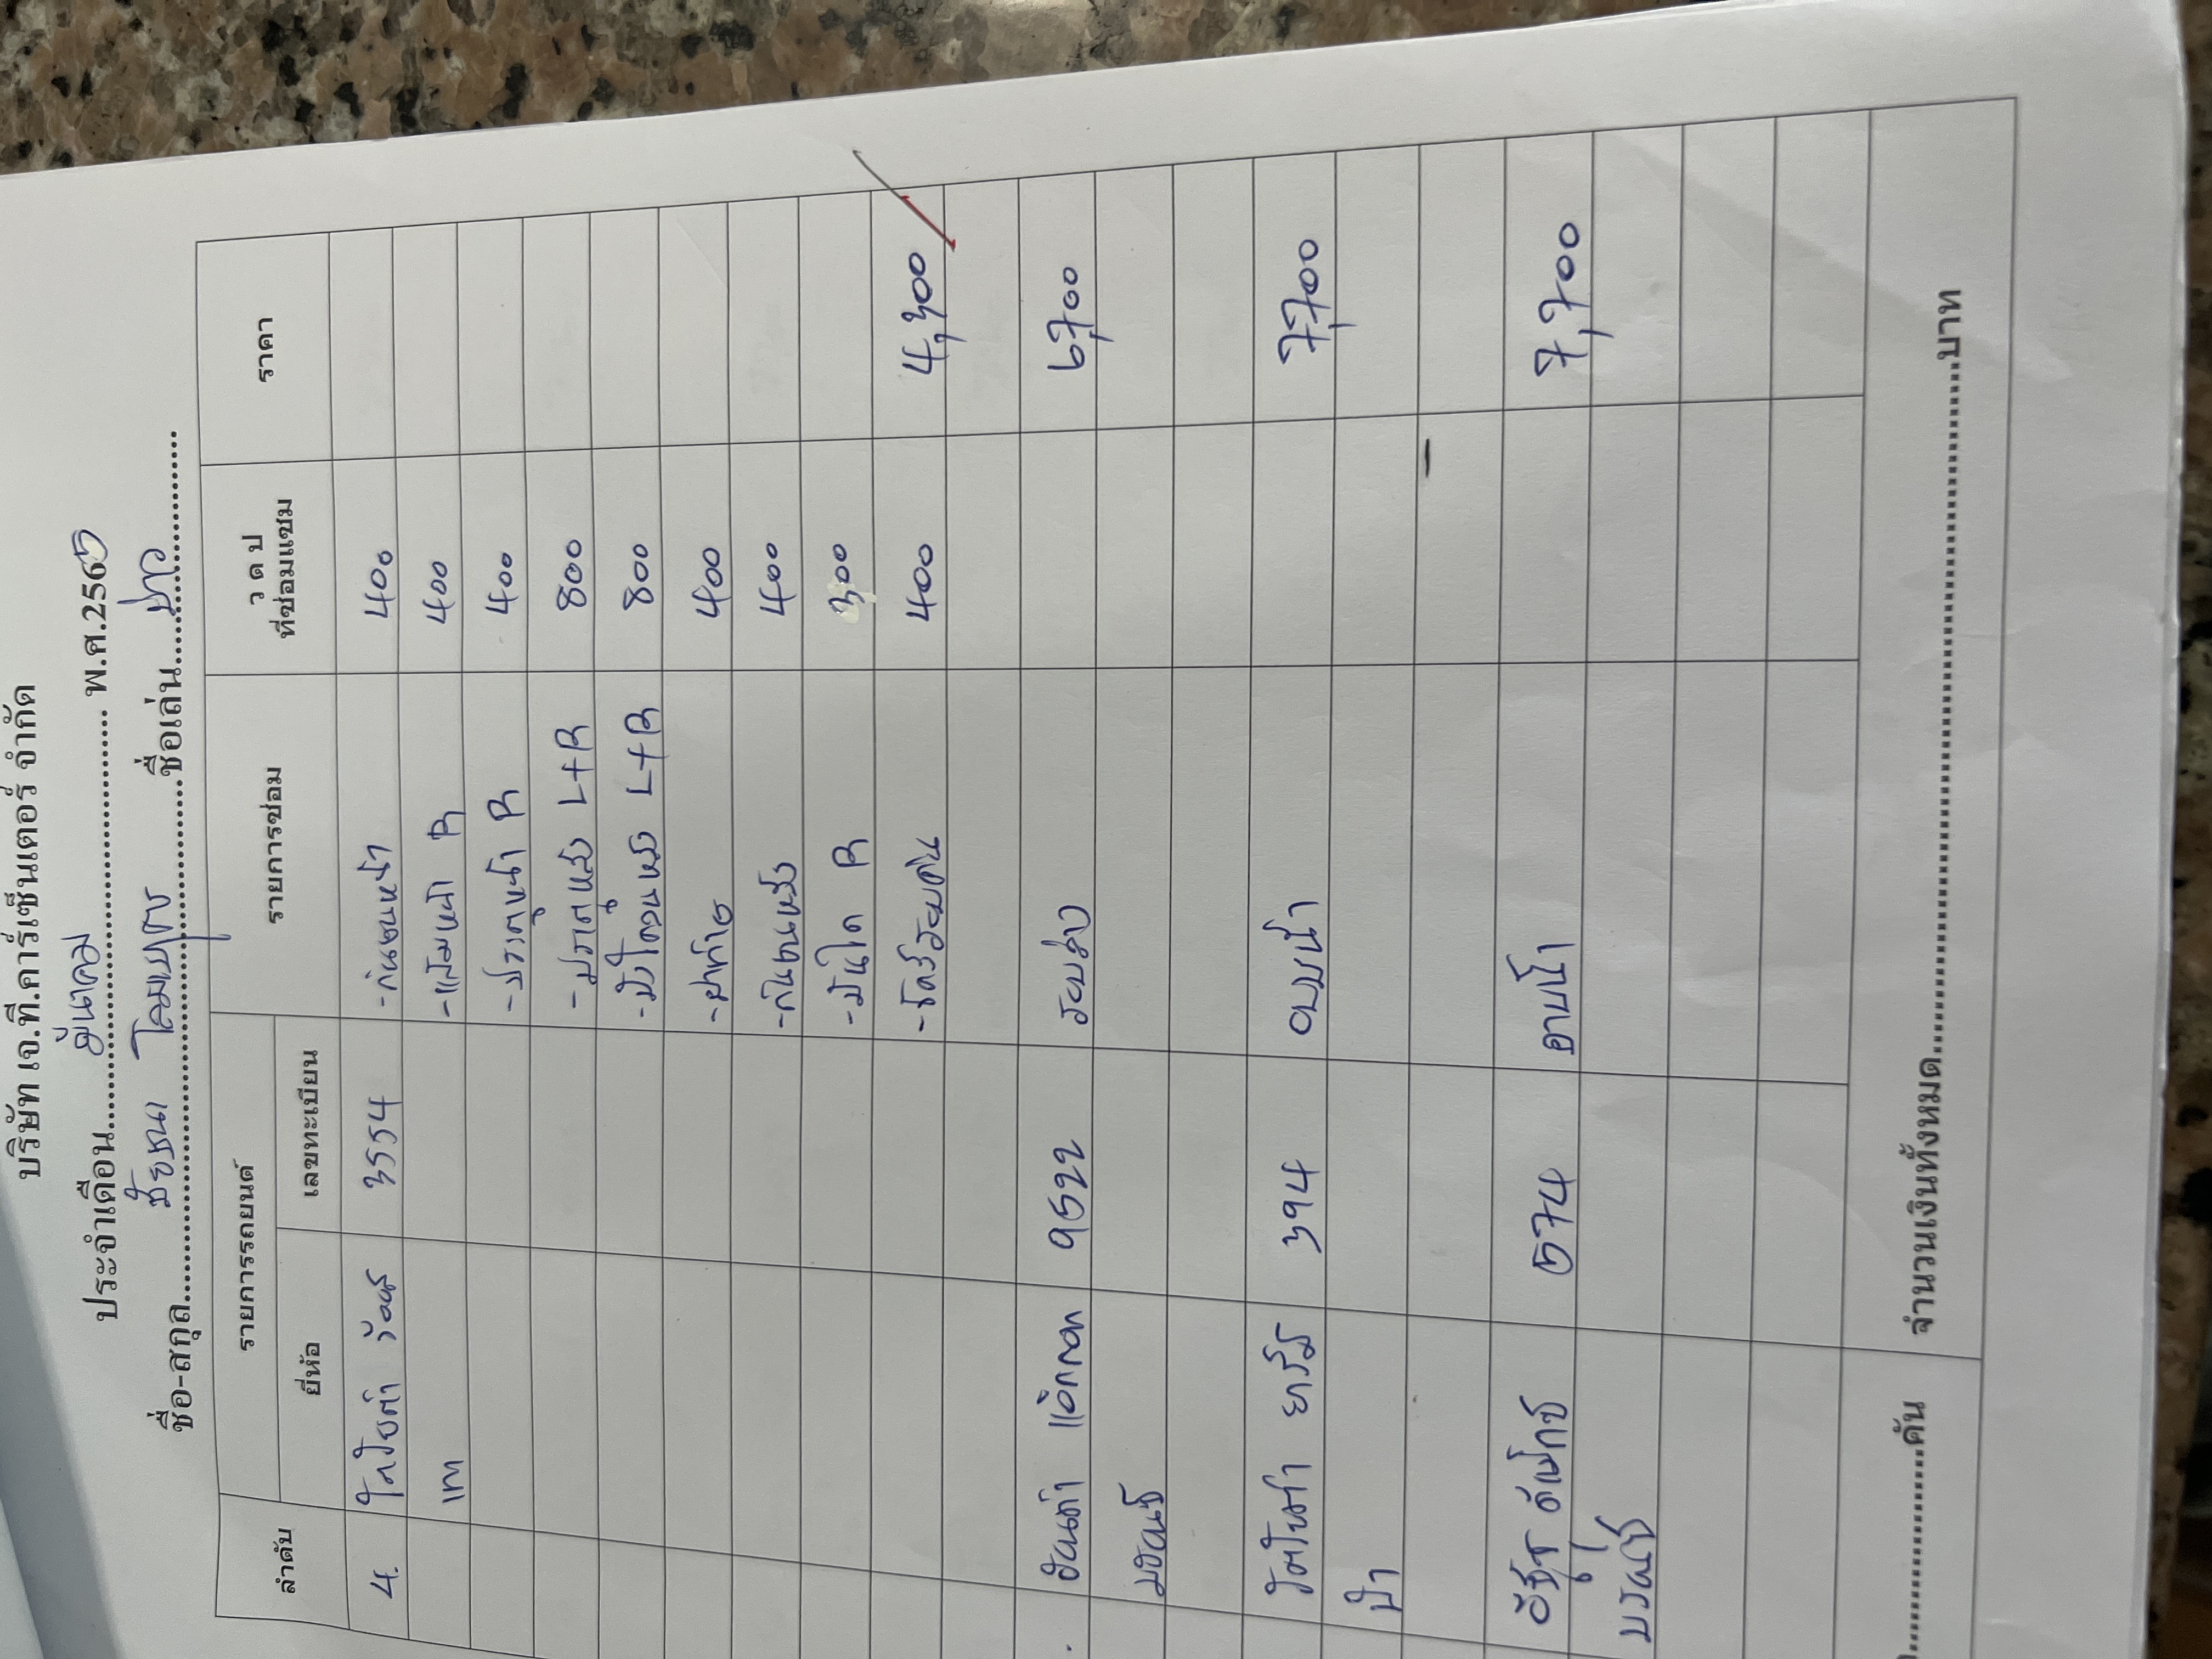 บริษัท เจ.ที.คาร์เซ็นเตอร์ จำกัด
ประจำเดือน มีนาคม พ.ศ.2565
ชื่อ-สกุล ชัยชนา ชื่อเล่น
ลำดับ รายการรถยนต์ รายการซ่อม ว ด ป ที่ซ่อมแซม ราคา
ยี่ห้อ เลขทะเบียน
4. โตโยต้า วีออส 3554 -กันชนหน้า 400
เทา -แก้มหน้า R 400
-ประตูหน้า R 400
-ประตูหลัง L+R 800
-บังโคลนหลัง L+R 800
-ฝาท้าย 400
-กันชนหลัง 400
-บันได R 300
400 4,300
ฮอนด้า แอคคอด 9522 รอบสาง 6,700
บรอนซ์
โตโยต้า ยารีส 394 อาบน้ำ 7,700
ฟ้า
อีซูซุ ดีแม็กซ์ 574 อาบน้ำ 7,700
บรอนซ์
คัน จำนวนเงินทั้งหมด บาท